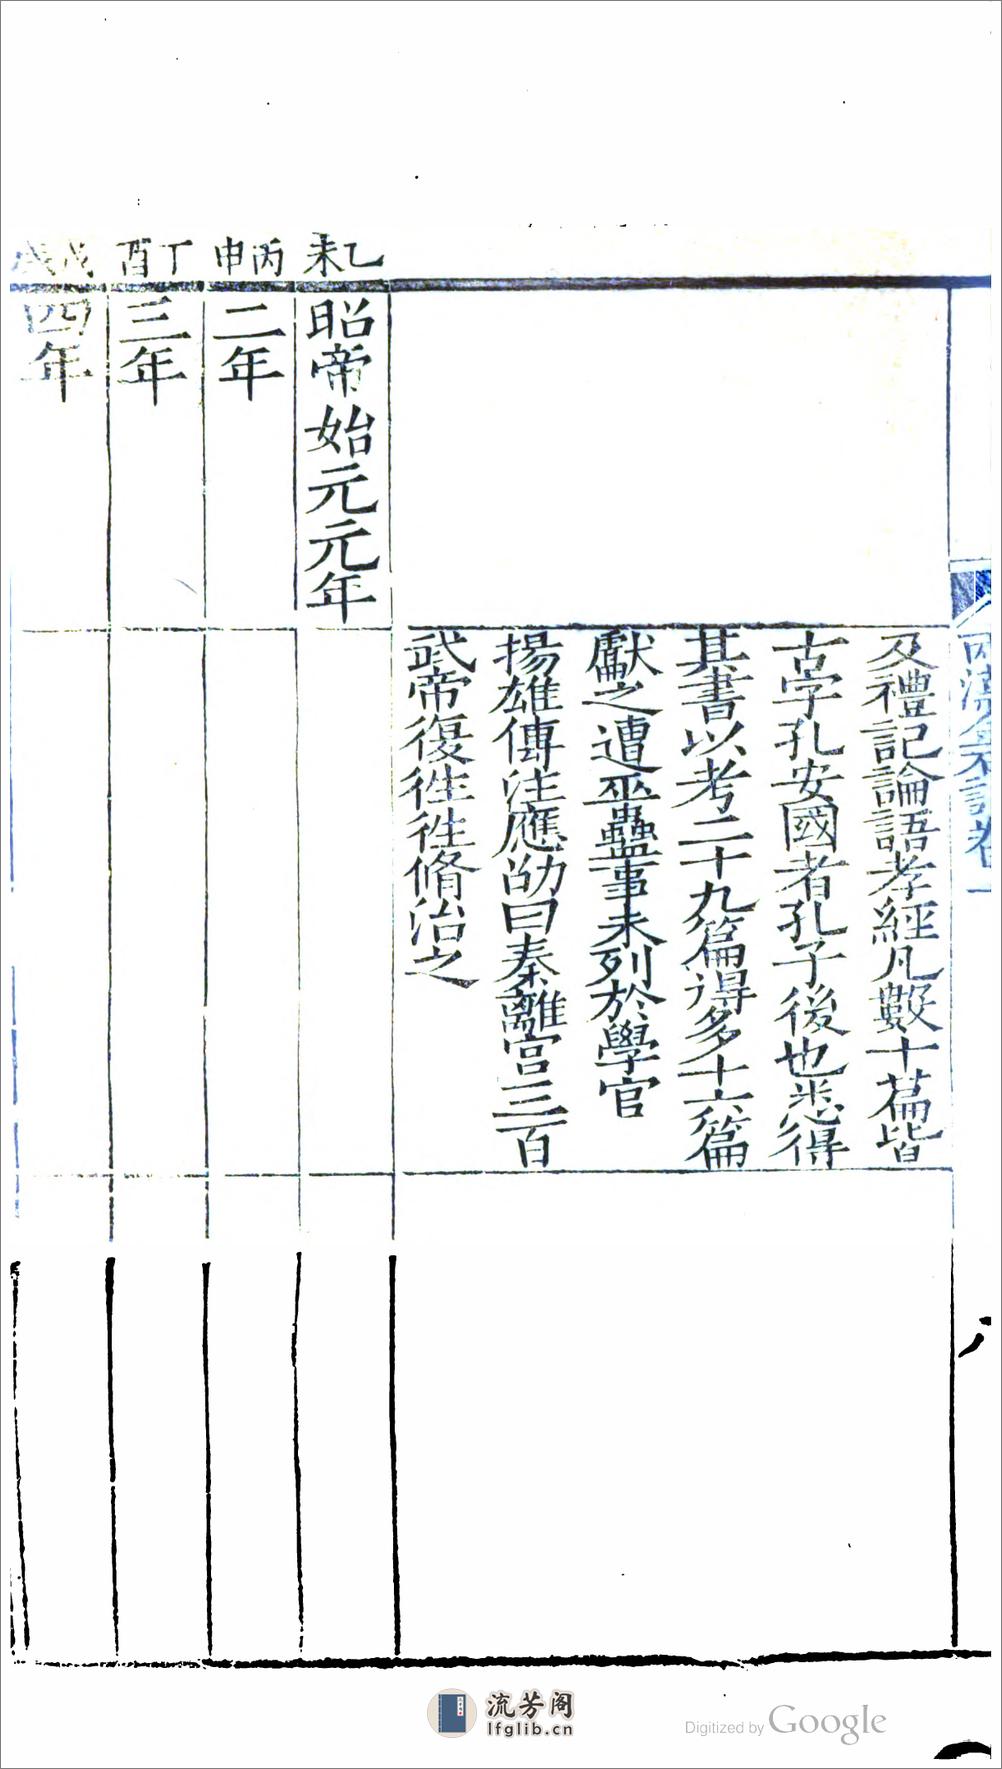 兩漢金石記卷一
八
及禮記論語孝經凡數十篇皆
古字孔安國者孔子後也悉得
其書以考二十九篇得多十六篇
獻之遭巫蠱事未列於學官
揚雄傳注應劭曰秦離宮三百
武帝復徃徃脩治之
乙未
昭帝始元元年
丙申
二年
丁酉
三年
戊戌
四年
流芳阁
lfglib.cn
Digitized by Google